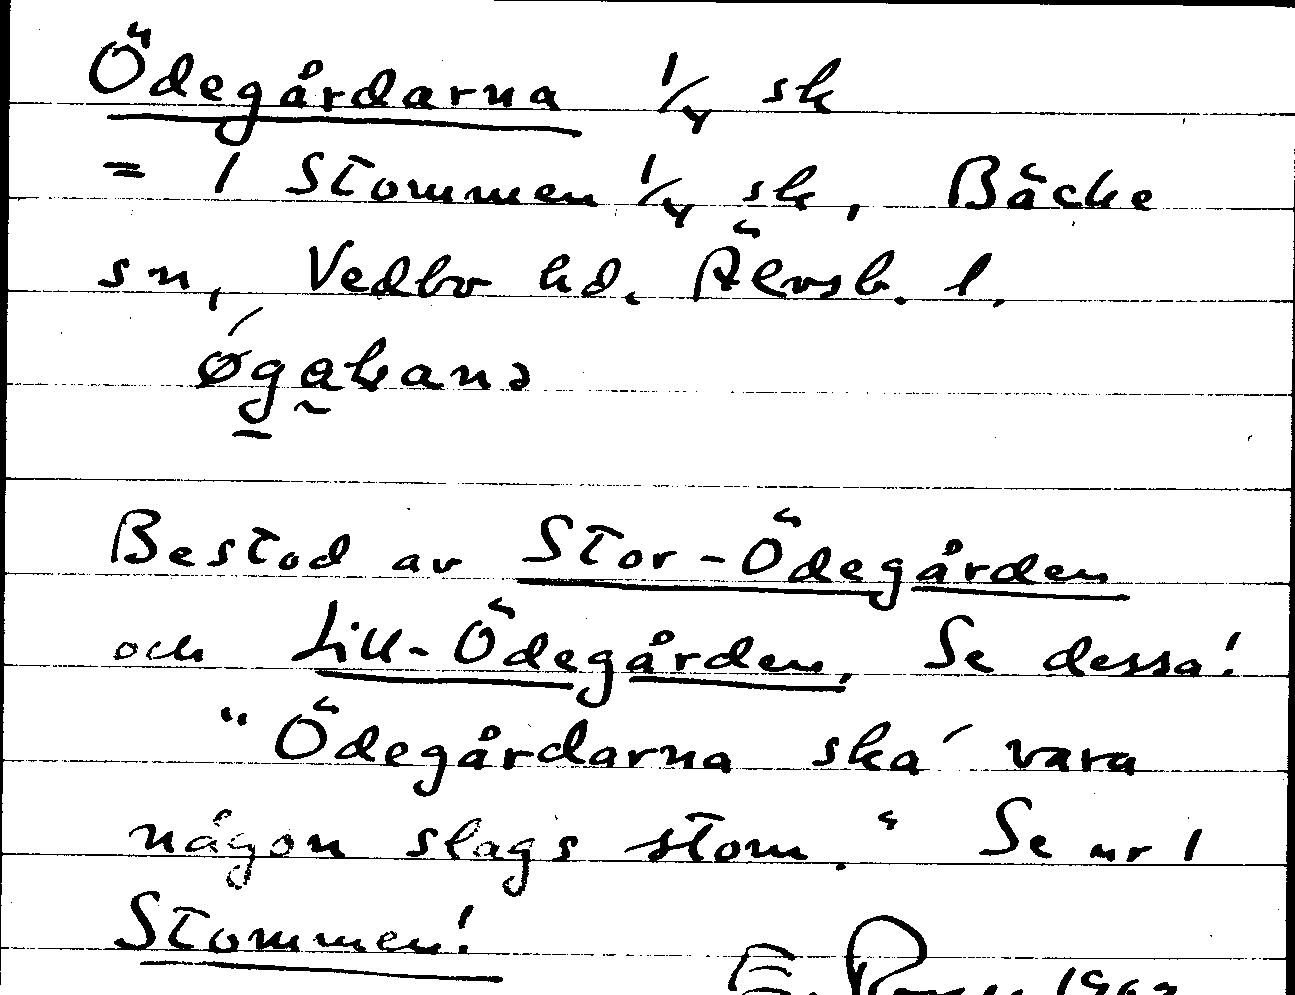 Ödegårdarna 1/4 sk
= 1 Stommen 1/4 sk, Bäcke
sn, Vedbo hd. Älvsb. l.
Bestod av Stor-Ödegården
och Lill-Ödegården. Se dessa!
"Ödegårdarna ska´ vara
någon slags stom." Se nr 1
Stommen!
E.